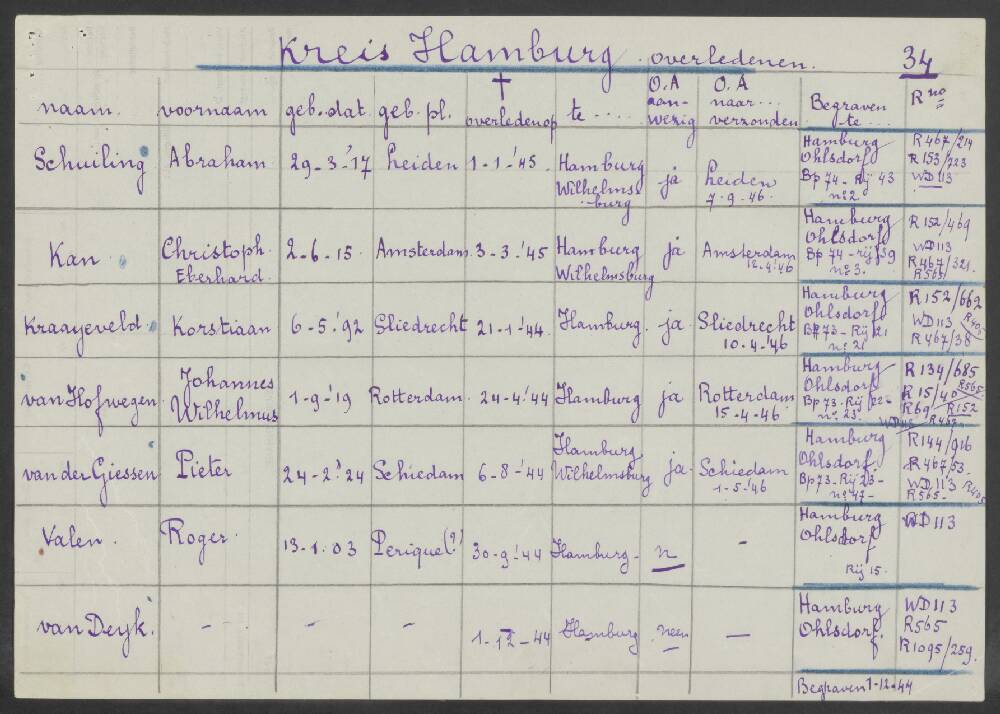 Kreis Hamburg overledenen. 34
naam. voornaam geb. dat. geb. pl. † overleden op te ..... O.A aan-wezig O.A naar... verzonden Begraven te... R no
Schuiling Abraham 29-3-'17 Leiden 1-1-'45 Hamburg Wilhelmsburg ja Leiden 7-9-46
Hamburg Ohlsdorf Bp 74 - Rij 43 no 2
R467/214
R153/323
WD113
Kan Christoph Eberhard 2-6-15 Amsterdam 3-3-'45 Hamburg Wilhelmsburg ja Amsterdam 12-4-'46
Hamburg Ohlsdorf Bp 74 - rij 39 no 3.
R152/469
WD113
R467/321.
R565
Kraayeveld Korstiaan 6-5-'92 Sliedrecht 21-1-'44 Hamburg. ja Sliedrecht 10-4-'46
Hamburg Ohlsdorf Bp 73 - Rij 21 no 21
R152/662
WD113
R467/38
van Hofwegen Johannes Wilhelmus 1-9-'19 Rotterdam 24-4-'44 Hamburg ja Rotterdam 15-4-46
Hamburg Ohlsdorf Bp 73 - Rij no 23
R134/685
R15/40 R565
R69 R152
van der Giessen Pieter 24-2-'24 Schiedam 6-8-'44 Hamburg Wilhelmsburg ja Schiedam 1-5-'46
Hamburg Ohlsdorf. Bp 73 - Rij 23 - no 47 -
R144/916
R467/53.
WD113
R565-
Valen. Roger 13-1-03 Perique(?) 30-9-'44 Hamburg - n -
Hamburg Ohlsdorf Rij 15.
WD113
van Deyk. - - - 1-12-44 Hamburg neen -
Hamburg Ohlsdorf.
WD113
R565
R1095/259.
Begraven 1-12-44